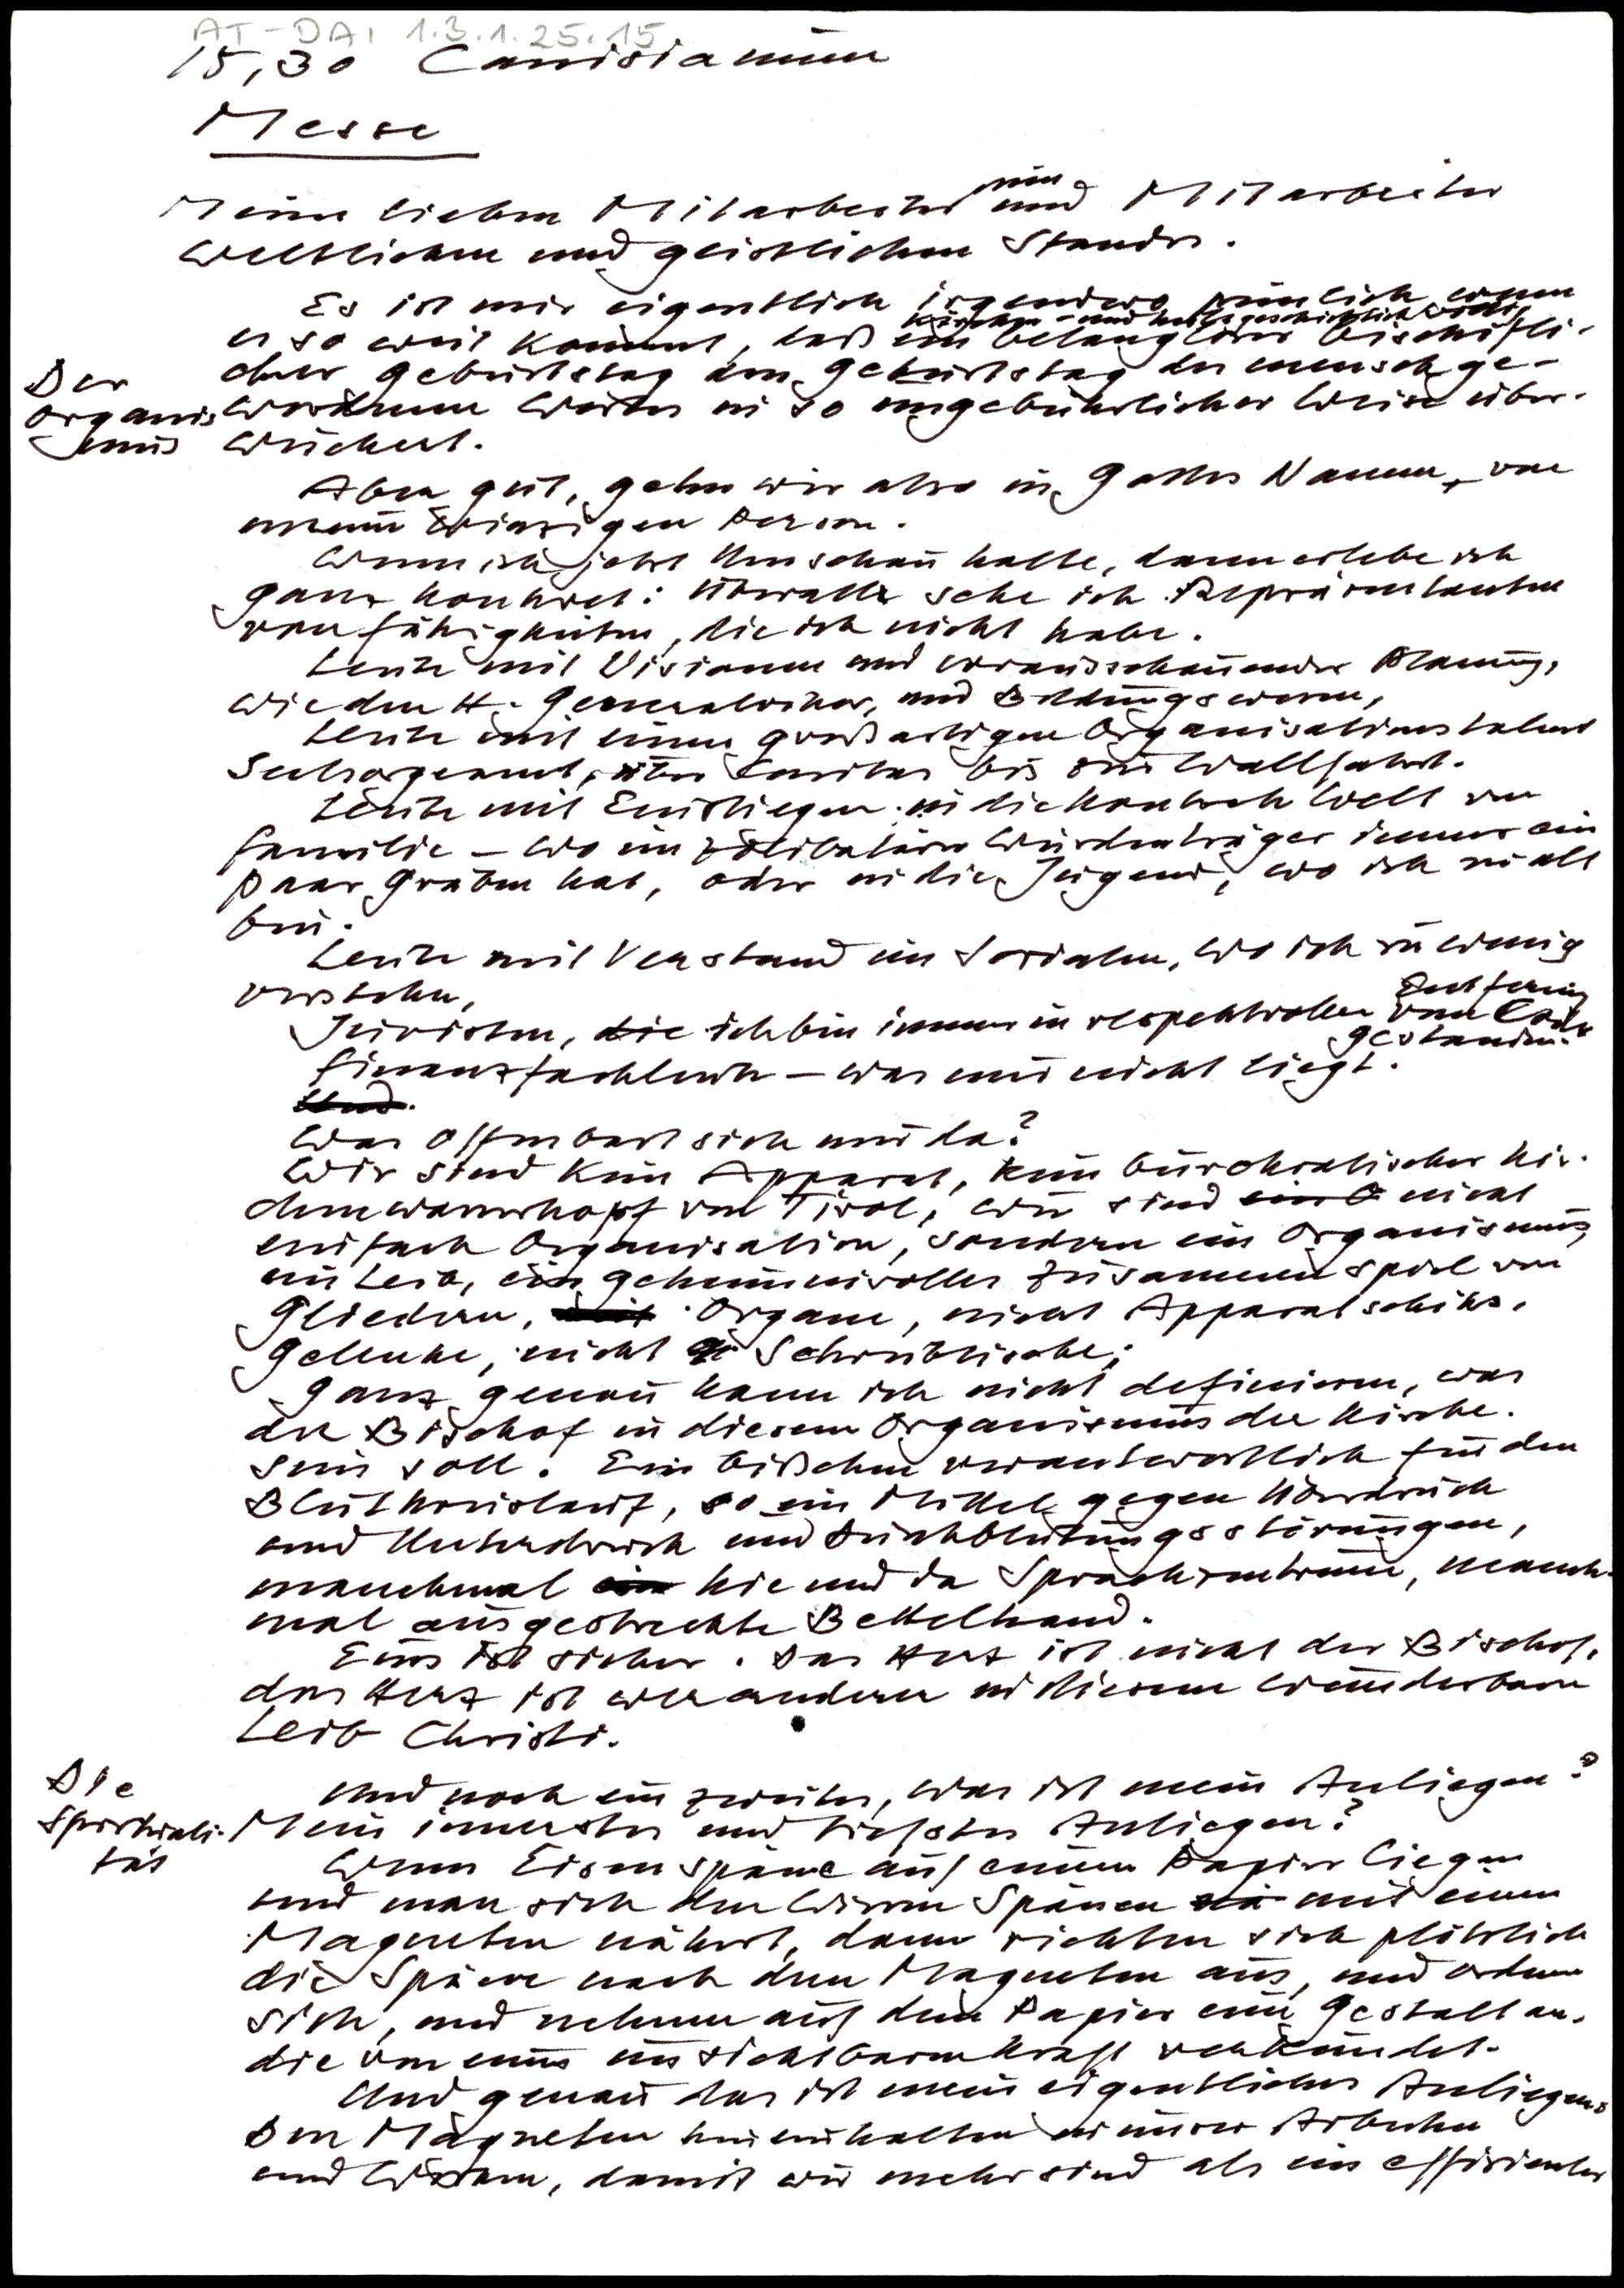 AT-DAI 1.3.1.25.15
15,30 Canisianum
Messe
Meine lieben Mitarbeiterinnen und Mitarbeiter
weltlichen und geistlichen Standes.
Es ist mir eigentlich irgendwo peinlich wenn
kirchen- und heilsgeschichtlich
es so weit kommt, daß ein belangloser bischöfli-
cher Geburtstag den Geburtstag des menschge-
Der
Organis
mus
wordenen Wortes in so ungebührlicher Weise über-
wuchert.
Aber gut, gehen wir also in Gottes Namen, von
meiner winzigen Person.
Wenn ich jetzt Umschau halte, dann erlebe ich
ganz konkret: Überall sehe ich Repräsentanten
von Fähigkeiten, die ich nicht habe.
Leute mit Visionen und vorausschauender Planung,
wie den H. Generalvikar, und Bildungswesen,
Leute mit einem großartigen Organisationstalent
Seelsorgeamt, über Caritas bis zur Wallfahrt.
Leute mit Einstiegen in die konkrete Welt von
Familie – wo ein zölibatärer Würdenträger immer ein
paar Gräben hat, oder in die Jugend, wo ich zu alt
bin.
Leute mit Verstand im Sozialen, wo ich zu wenig
verstehe,
Juristen, die ich bin immer in respektvoller Entfernung vom Codex
gestanden.
Finanzfachleute – was mir nicht liegt.
Und.
Was offenbart sich mir da?
Wir sind kein Apparat, kein bürokratischer Kir-
chenwasserkopf von Tirol, wir sind nicht
einfach Organisation, sondern ein Organismus,
ein Leib, ein geheimnisvolles Zusammenspiel von
Gliedern, Organe, nicht Apparatschiks.
Gelenke, nicht Schreibtische;
Ganz genau kann ich nicht definieren, was
der Bischof in diesem Organismus der Kirche
sein soll. Ein bißchen verantwortlich für den
Blutkreislauf, so ein Mittel gegen Überdruck
und Unterdruck und Durchblutungsstörungen,
manchmal hie und da Sprachzentrum, manch-
mal ausgestreckte Bettelhand.
Eins ist sicher. Das Herz ist nicht der Bischof,
das Herz ist wer anderer in diesem wunderbaren
Leib Christi.
Die
Spirituali-
tät
Und noch ein zweites, was ist mein Anliegen?
Mein innerstes und tiefstes Anliegen?
Wenn Eisenspäne auf einem Papier liegen
und man sich den wirren Spänen mit einem
Magneten nähert, dann richten sich plötzlich
die Späne nach dem Magneten aus, und ordnen
sich, und nehmen auf dem Papier eine Gestalt an,
die von einer unsichtbaren Kraft verkündet.
Und genau das ist mein eigentliches Anliegen:
Den Magneten hineinhalten in unser Arbeiten
und Wirken, damit wir mehr sind als ein effizienter